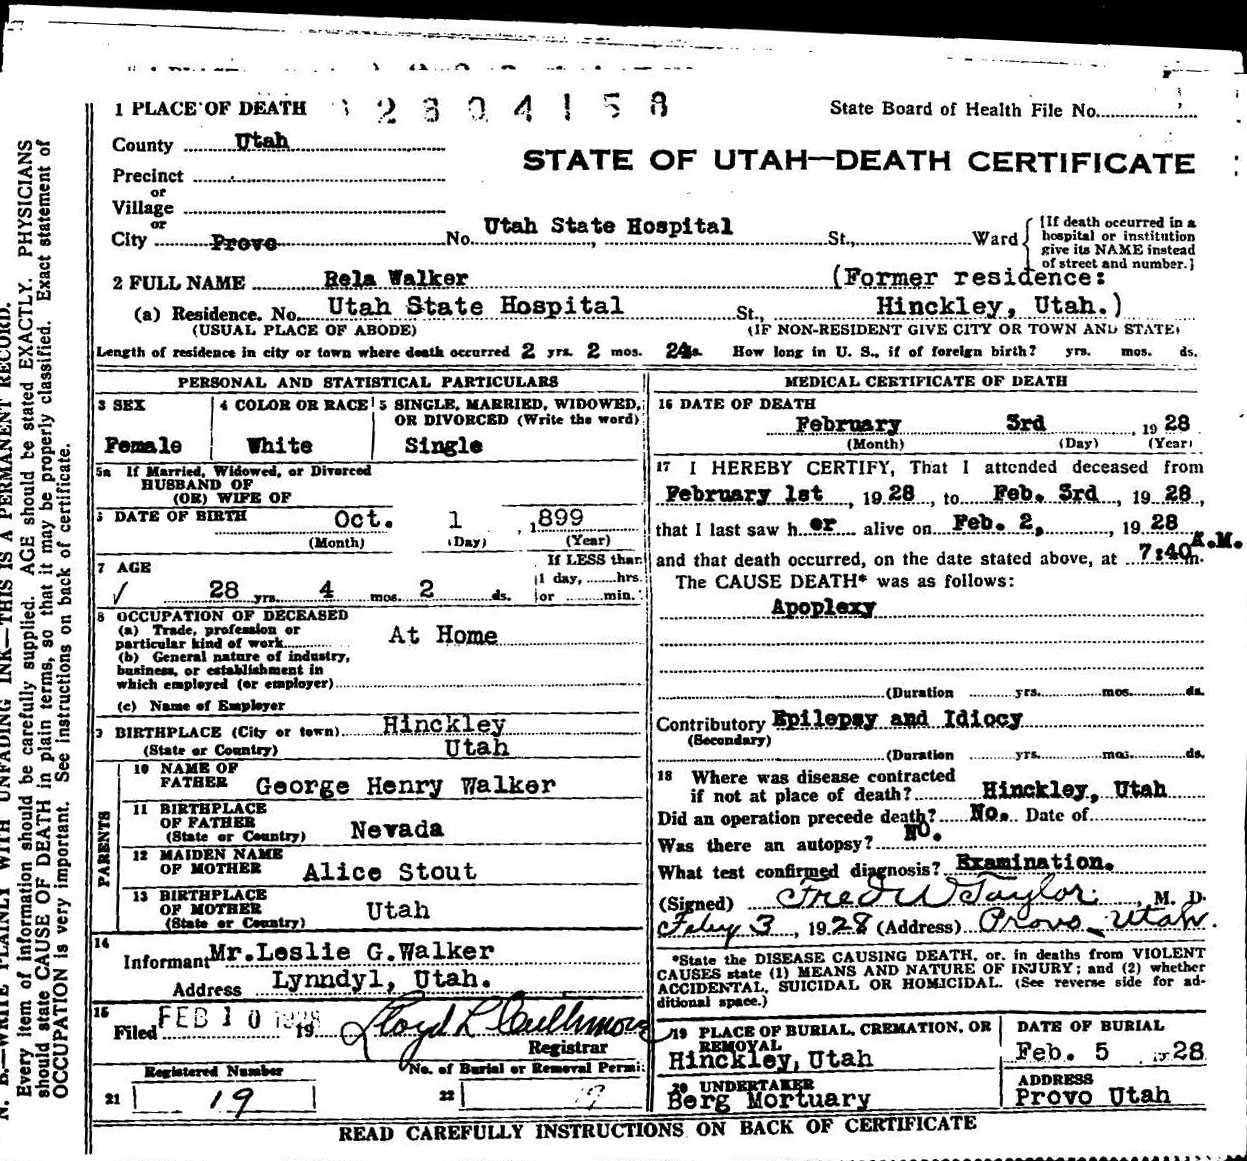 1 PLACE OF DEATH 2804158
State Board of Health File No.
County Utah
STATE OF UTAH—DEATH CERTIFICATE
Precinct
or
Village
or
City Provo No. Utah State Hospital St., Ward
[If death occurred in a
hospital or institution
give its NAME instead
of street and number.]
2 FULL NAME Rela Walker (Former residence:
(a) Residence. No. Utah State Hospital St., Hinckley, Utah.)
(USUAL PLACE OF ABODE) (IF NON-RESIDENT GIVE CITY OR TOWN AND STATE)
Length of residence in city or town where death occurred 2 yrs. 2 mos. 24 ds. How long in U. S., if of foreign birth? yrs. mos. ds.
PERSONAL AND STATISTICAL PARTICULARS
3 SEX
Female
4 COLOR OR RACE
White
5 SINGLE, MARRIED, WIDOWED,
OR DIVORCED (Write the word)
Single
5a If Married, Widowed, or Divorced
HUSBAND OF
(OR) WIFE OF
DATE OF BIRTH Oct. 1 , 1899
(Month) (Day) (Year)
7 AGE
28 yrs. 4 mos. 2 ds.
If LESS than
1 day, hrs.
or min.
8 OCCUPATION OF DECEASED
(a) Trade, profession or
particular kind of work At Home
(b) General nature of industry,
business, or establishment in
which employed (or employer)
(c) Name of Employer
9 BIRTHPLACE (City or town) Hinckley
(State or Country) Utah
PARENTS
10 NAME OF
FATHER George Henry Walker
11 BIRTHPLACE
OF FATHER
(State or Country) Nevada
12 MAIDEN NAME
OF MOTHER Alice Stout
13 BIRTHPLACE
OF MOTHER
(State or Country) Utah
14
Informant Mr.Leslie G.Walker
Address Lynndyl, Utah.
15
Filed FEB 10 1928 19 Lloyd L Cullimore
Registrar
Registered Number
21 19
No. of Burial or Removal Permit
22 19
MEDICAL CERTIFICATE OF DEATH
16 DATE OF DEATH
February 3rd 19 28
(Month) (Day) (Year)
17 I HEREBY CERTIFY, That I attended deceased from
February 1st , 19 28 , to Feb. 3rd , 19 28 ,
that I last saw h er alive on Feb. 2, , 19 28
and that death occurred, on the date stated above, at 7:40 A.M. m.
The CAUSE DEATH* was as follows:
Apoplexy
(Duration yrs. mos. ds.
Contributory Epilepsy and Idiocy
(Secondary)
(Duration yrs. mos. ds.
18 Where was disease contracted
if not at place of death? Hinckley, Utah
Did an operation precede death? No. Date of
Was there an autopsy? No.
What test confirmed diagnosis? Examination.
(Signed) Fred W Taylor , M. D.
Feby 3 , 1928 (Address) Provo Utah.
*State the DISEASE CAUSING DEATH, or, in deaths from VIOLENT
CAUSES state (1) MEANS AND NATURE OF INJURY; and (2) whether
ACCIDENTAL, SUICIDAL OR HOMICIDAL. (See reverse side for ad-
ditional space.)
19 PLACE OF BURIAL, CREMATION, OR
REMOVAL
Hinckley, Utah
DATE OF BURIAL
Feb. 5 19 28
20 UNDERTAKER
Berg Mortuary
ADDRESS
Provo Utah
READ CAREFULLY INSTRUCTIONS ON BACK OF CERTIFICATE
N. B.—WRITE PLAINLY WITH UNFADING INK—THIS IS A PERMANENT RECORD.
Every item of information should be carefully supplied. AGE should be stated EXACTLY. PHYSICIANS
should state CAUSE OF DEATH in plain terms, so that it may be properly classified. Exact statement of
OCCUPATION is very important. See instructions on back of certificate.